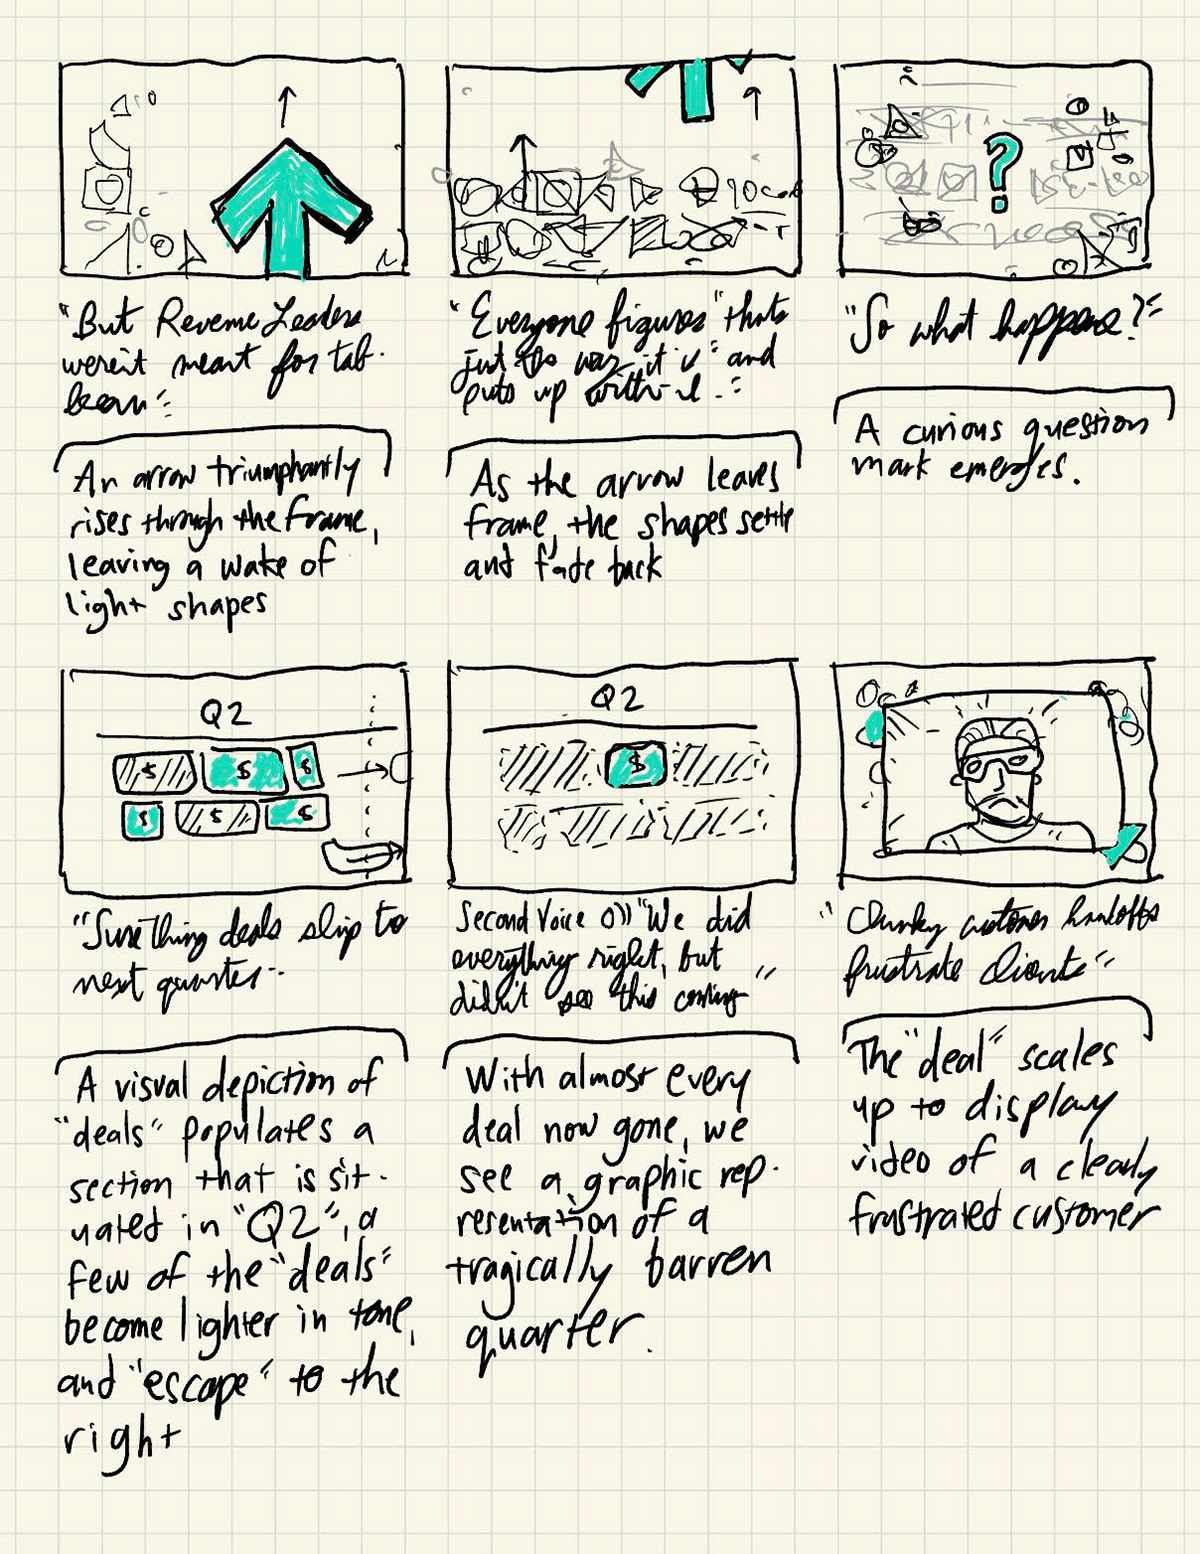 "But Revenue Leaders
weren't meant for tab-
"Everyone figures" that's
just the way it is" and
puts up with it."
"So what happens?"
An arrow triumphantly
rises through the frame,
leaving a wake of
light shapes
As the arrow leaves
frame, the shapes settle
and fade back
A curious question
mark emerges.
Q2
$ $ $
$ $ $
Q2
$
"Sure thing deals slip to
next quarter"
Second Voice "We did
everything right, but
didn't see this coming"
"Clunky customer handoffs
frustrate clients"
A visual depiction of
"deals" populates a
section that is sit-
uated in "Q2", a
few of the "deals"
become lighter in tone,
and "escape" to the
right
With almost every
deal now gone, we
see a graphic rep-
resentation of a
tragically barren
quarter.
The "deal" scales
up to display
video of a clearly
frustrated customer